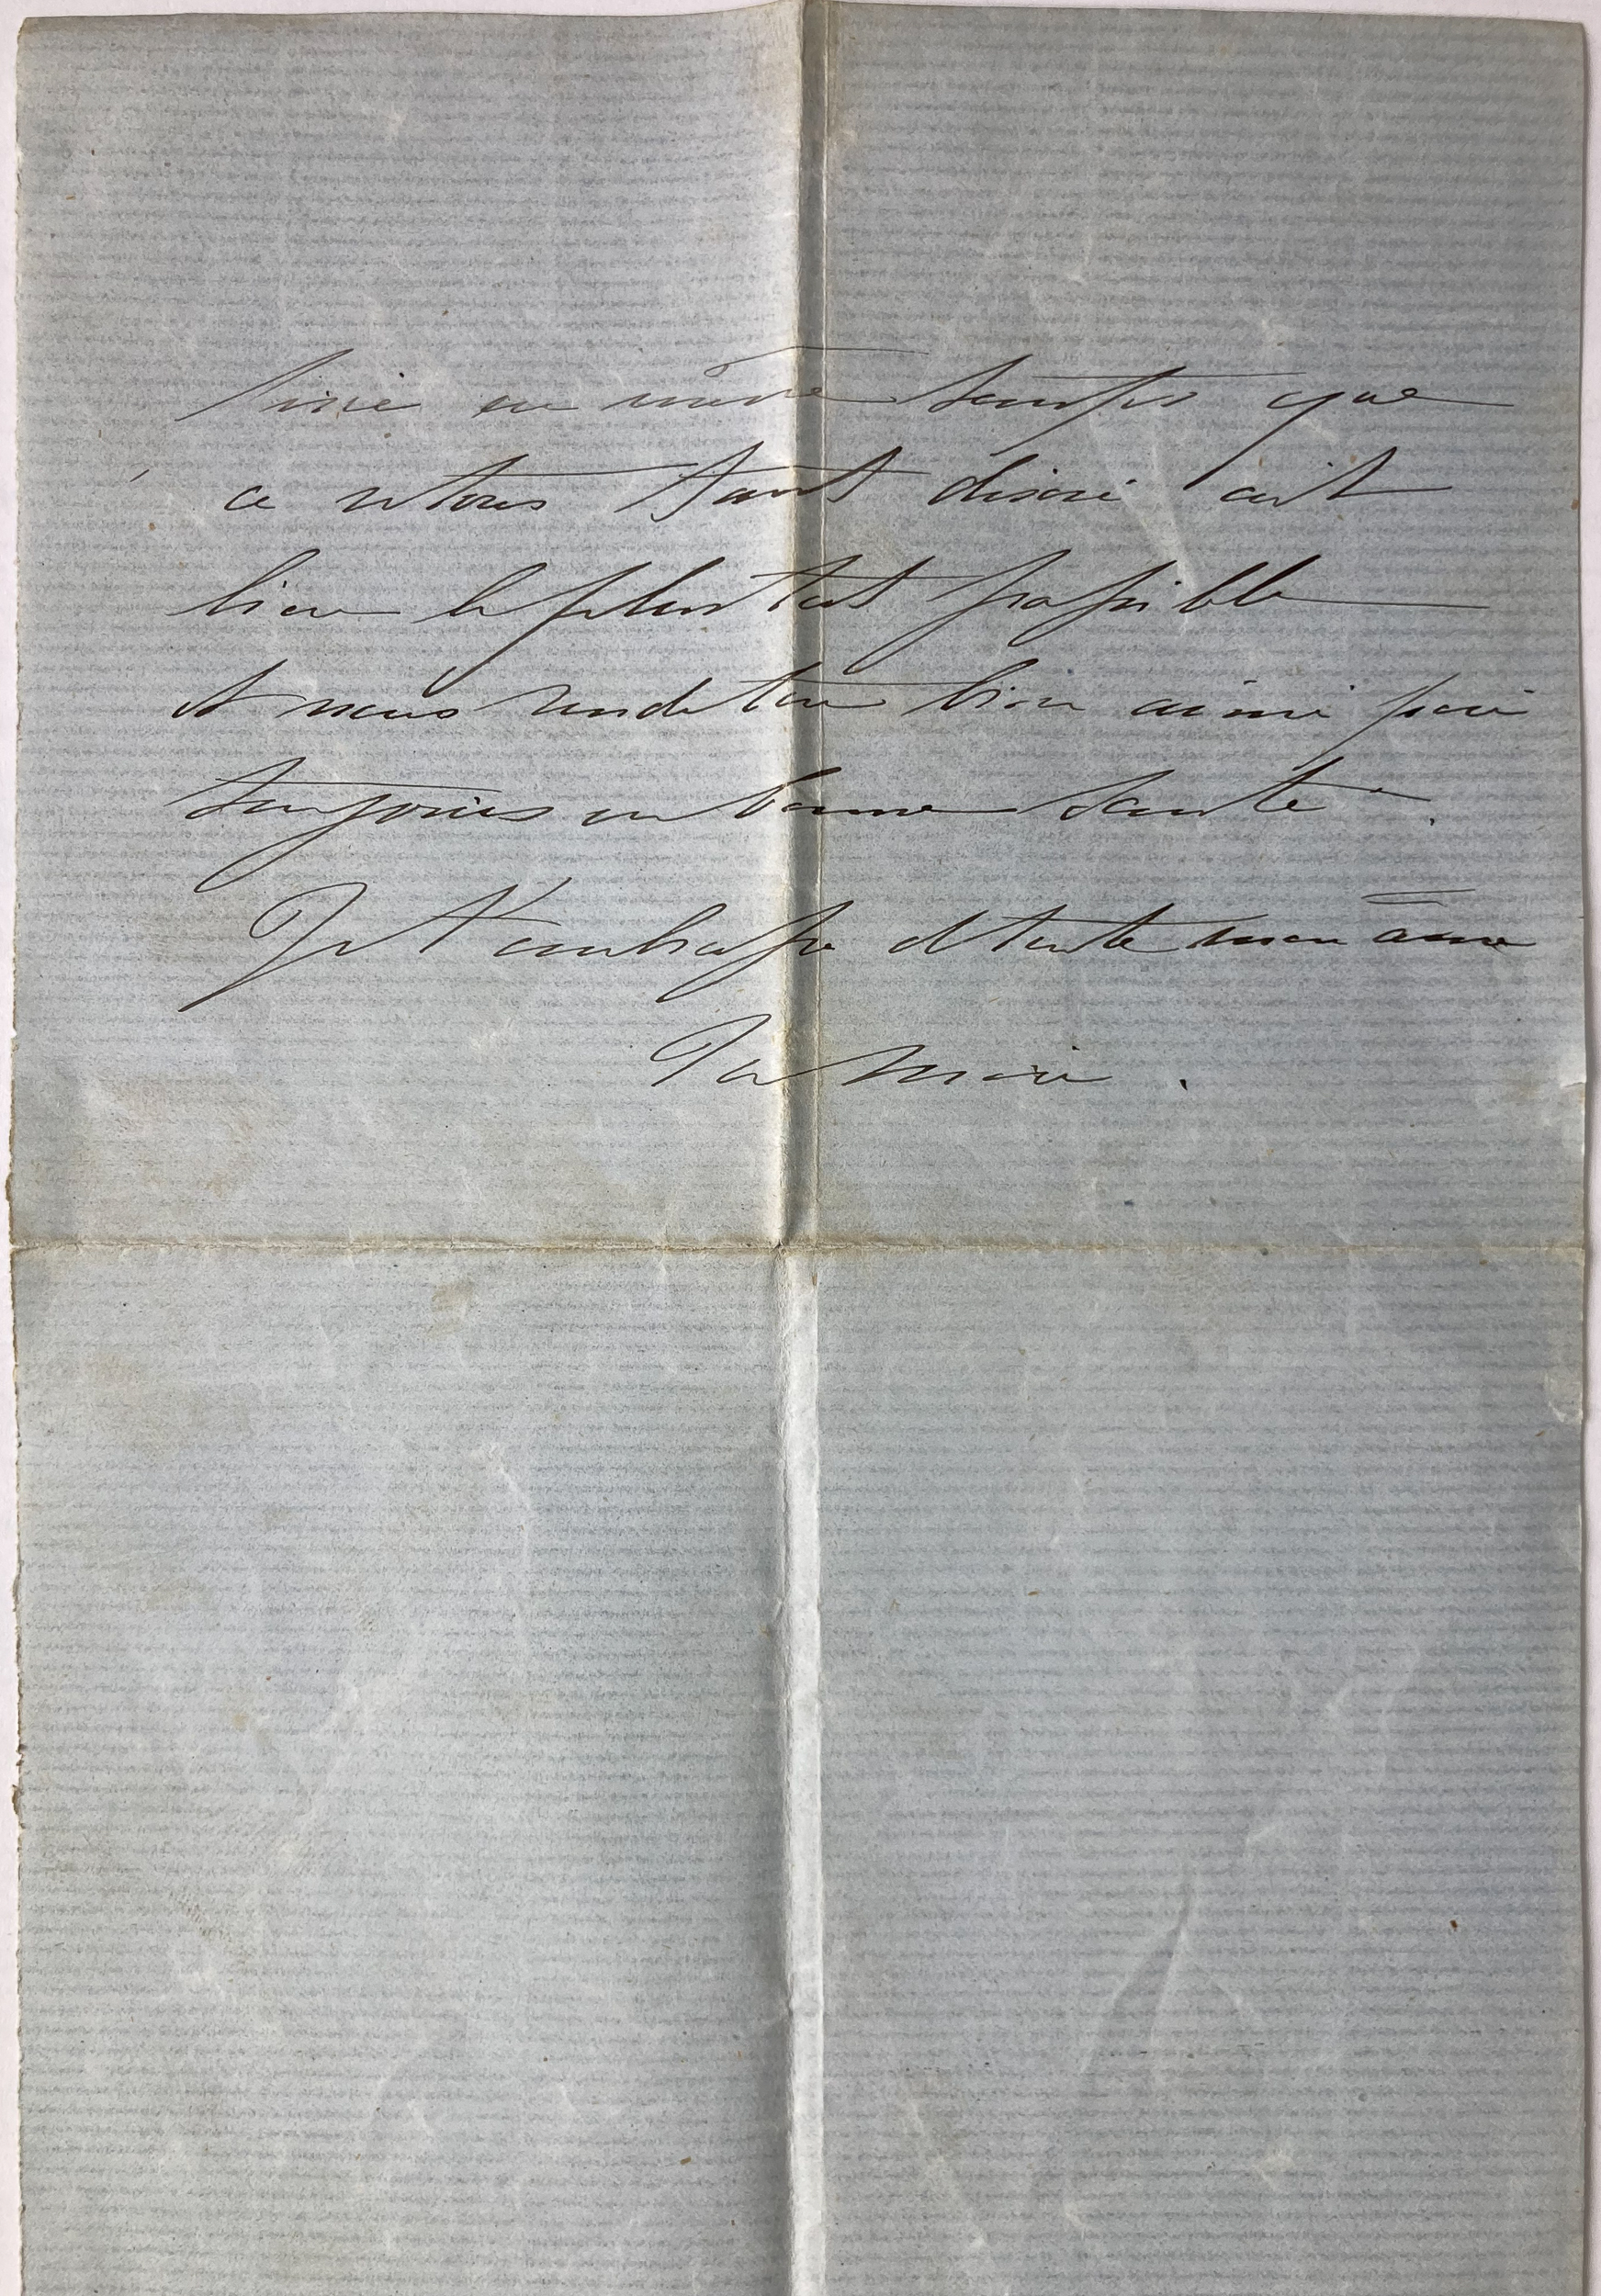 sirie en même temps que
ce retour tant désiré ait
lieu le plus tôt possible
et nous rende ton bien aimé père
toujours en bonne santé.
Je t'embrasse de toute mon âme
Ta mère.